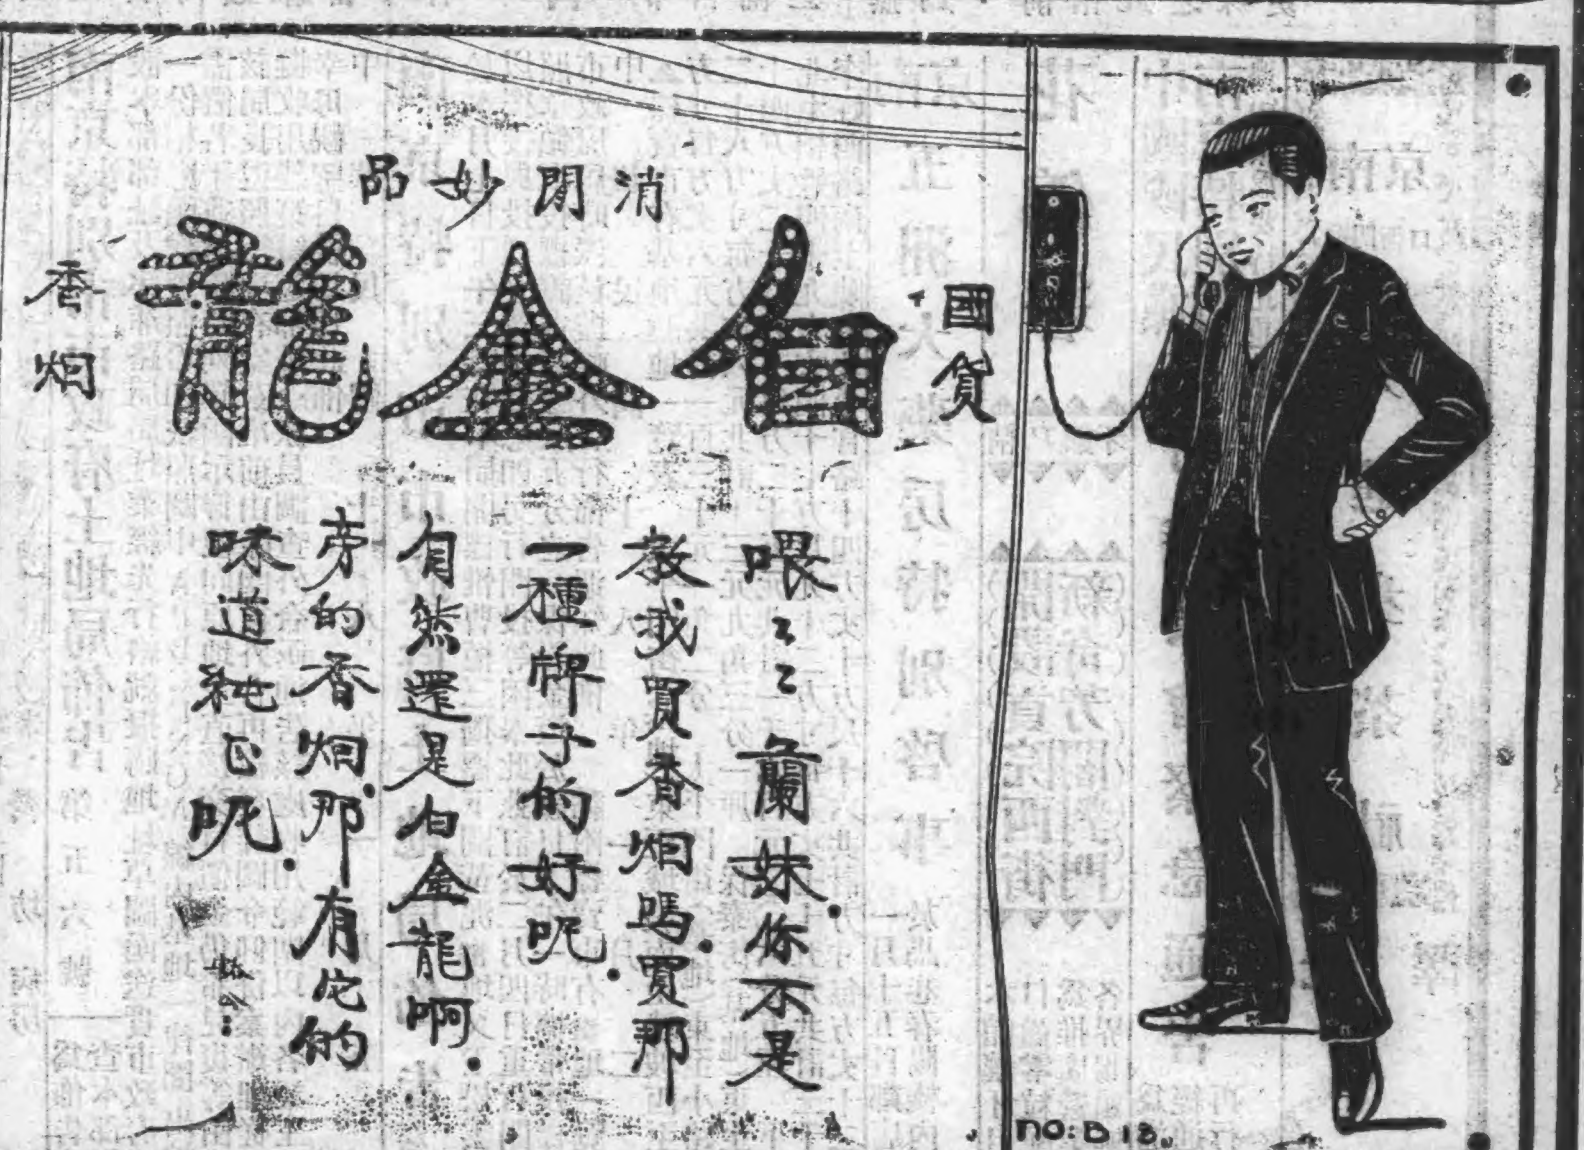 消閒妙品
國貨
白金龍
香烟
喂〻〻蘭妹.你不是
教我買香烟嗎.買那
一種牌子的好呢.
自然還是白金龍啊.
旁的香烟.那有它的
味道純正呢.
NO:B 13